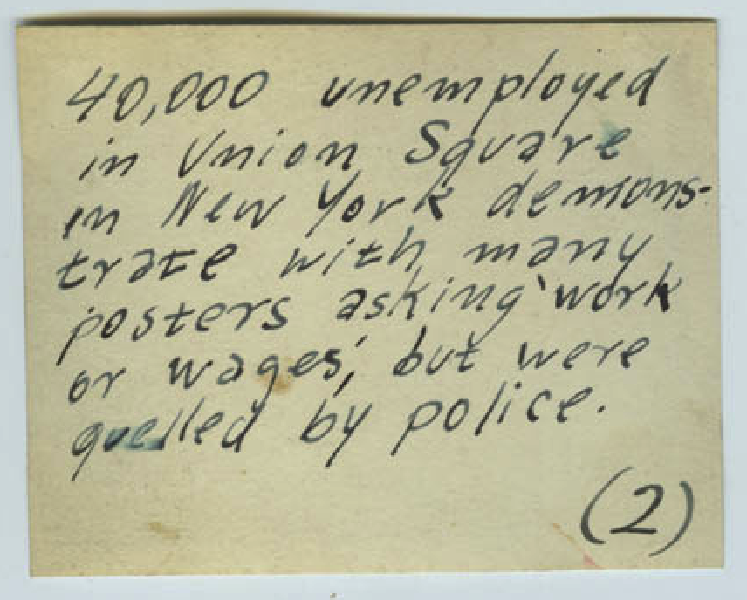 40,000 unemployed
in Union Square
in New York demons-
trate with many
posters asking 'work
or wages', but were
quelled by police.
(2)